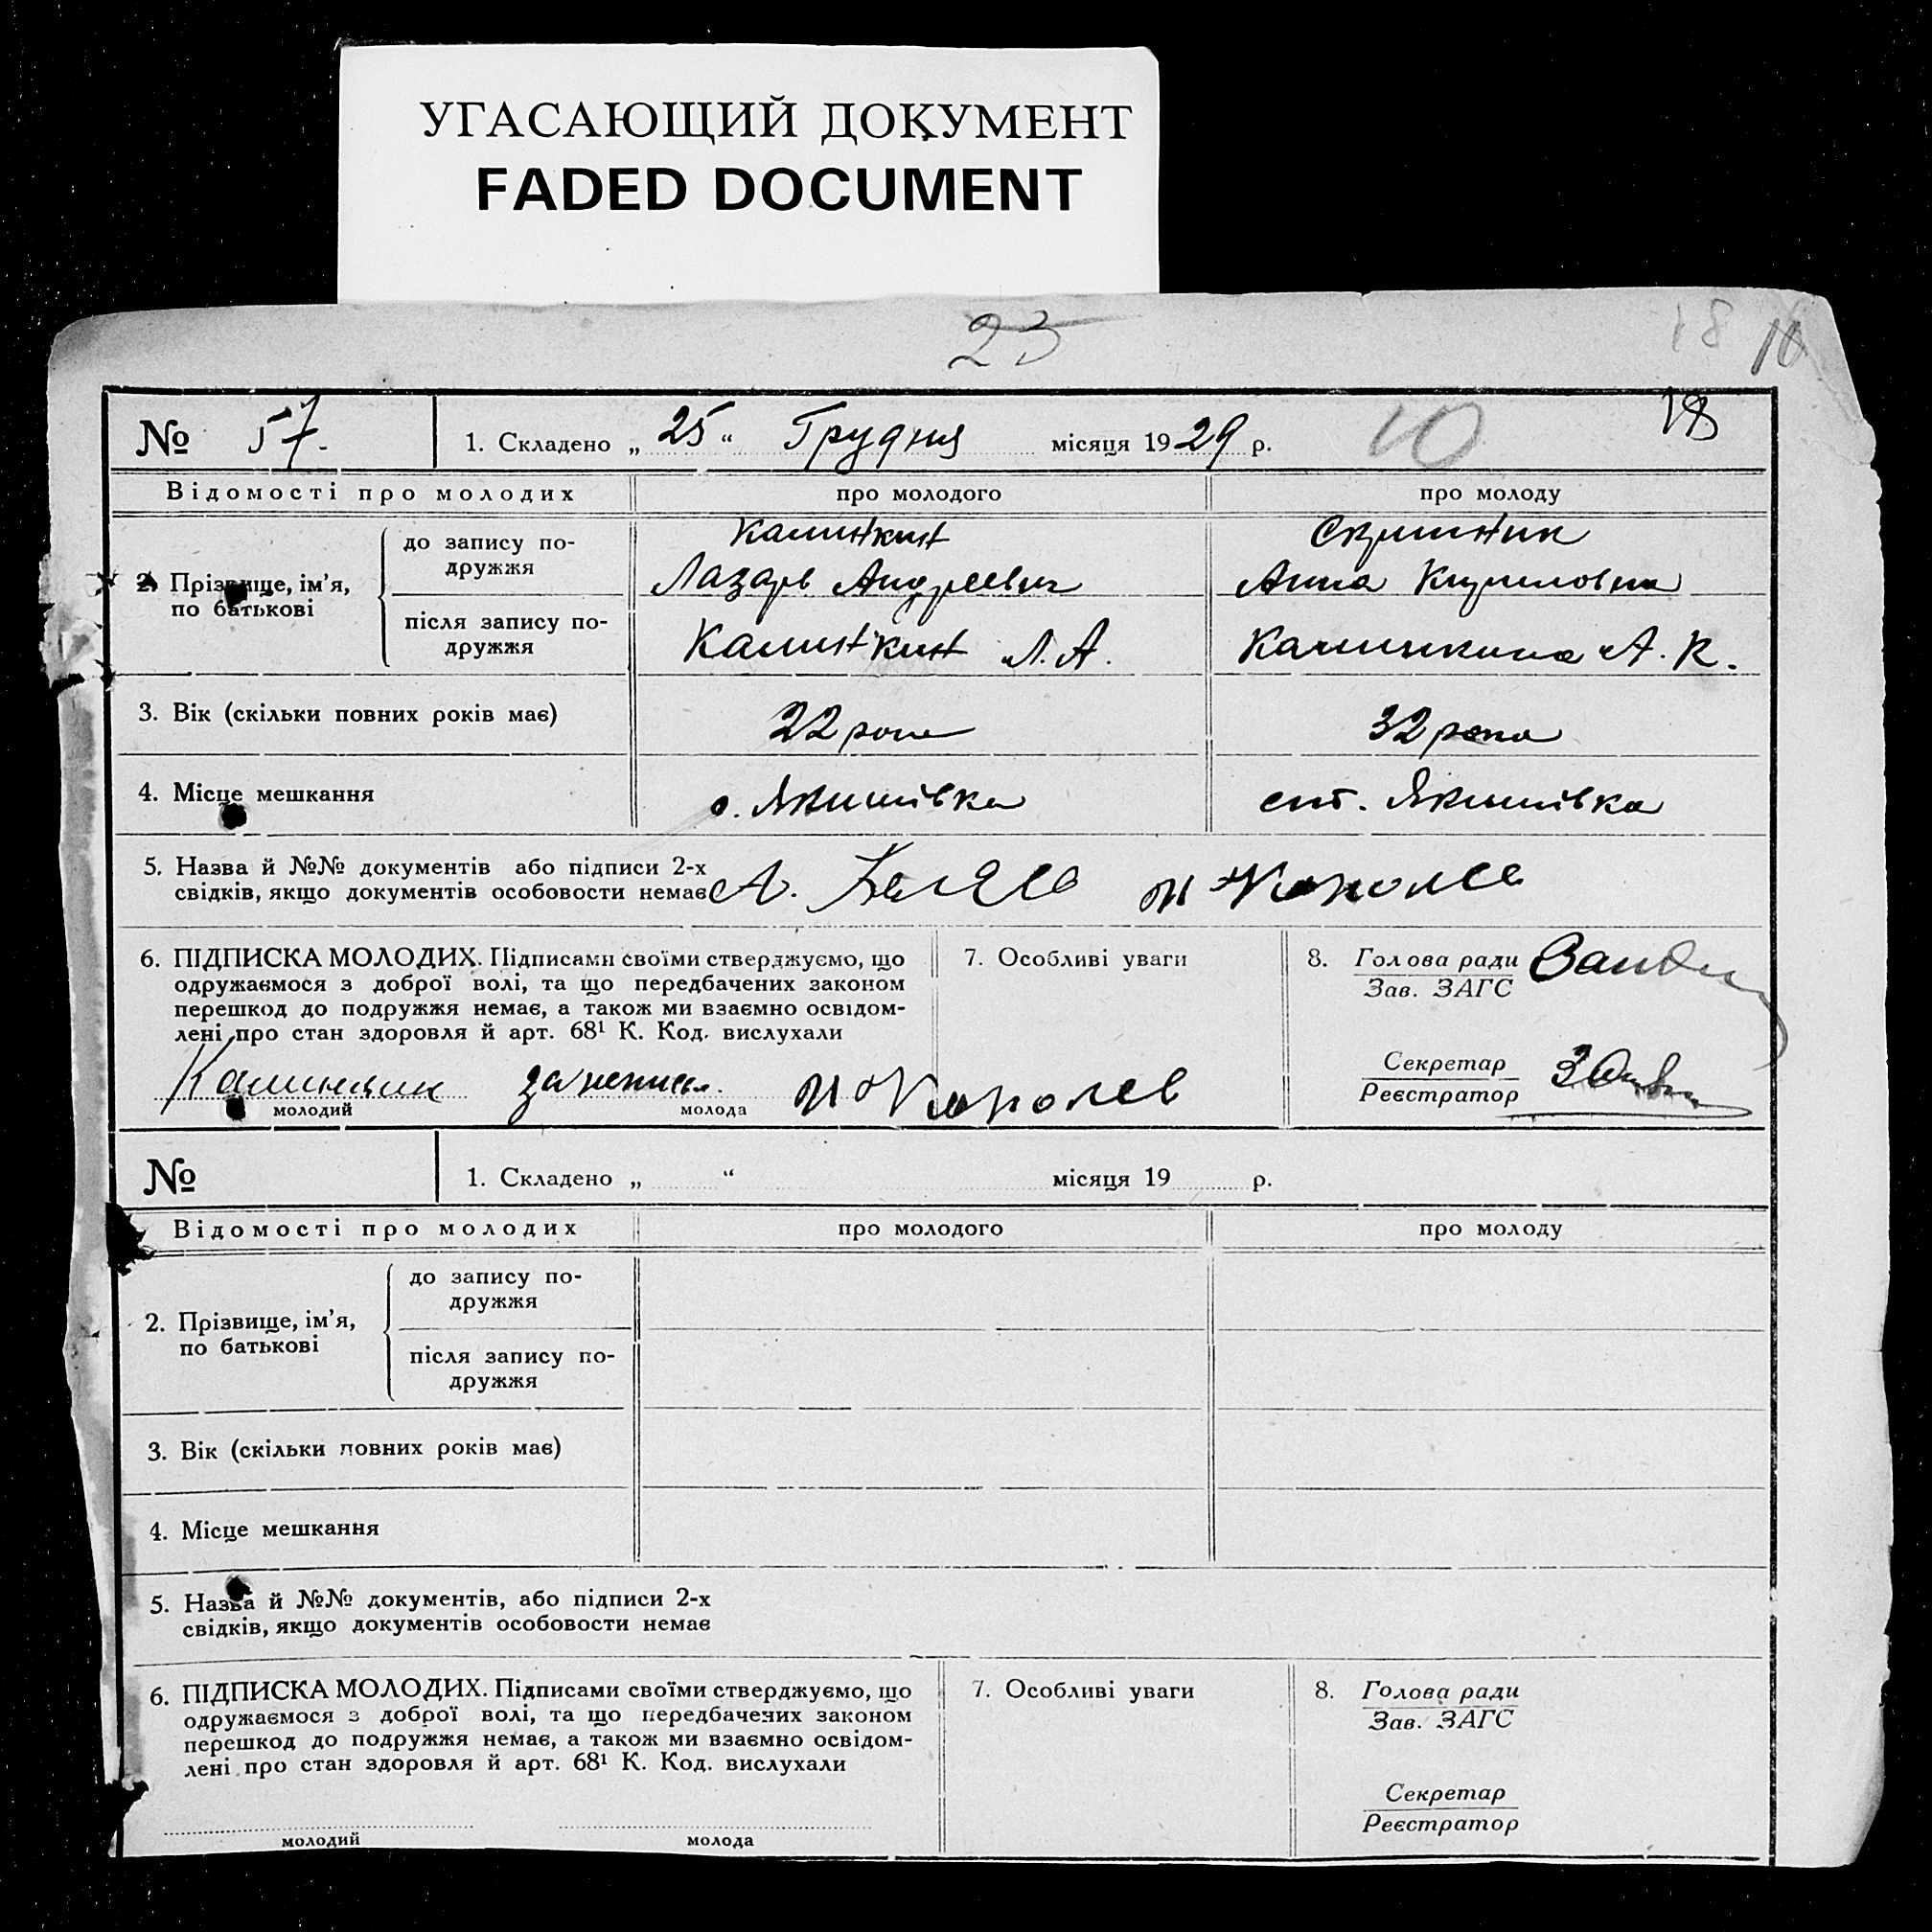 УГАСАЮЩИЙ ДОКУМЕНТ
FADED DOCUMENT
23
18
18
10
№ 57. 1. Складено „ 25 “ Грудня місяця 1929 р.
Відомості про молодих про молодого про молоду
2. Прізвище, ім'я, по батькові
до запису по-
дружжя
Калинкин Скрипник
Лазарь Андреевич Анна Кириловна
після запису по-
дружжя
Калинкин Л. А. Калинкина А. К.
3. Вік (скільки повних років має) 22 роки 32 роки
4. Місце мешкання с. Якимівка смт. Якимівка
5. Назва й №№ документів або підписи 2-х
свідків, якщо документів особовости немає А. и Королев
6. ПІДПИСКА МОЛОДИХ. Підписами своїми стверджуємо, що
одружаємося з доброї волі, та що передбачених законом
перешкод до подружжя немає, а також ми взаємно освідом-
лені про стан здоровля й арт. 68¹ К. Код. вислухали
Калинкин за непись. и Королев
молодий молода
7. Особливі уваги
8. Голова ради
Зав. ЗАГС
Секретар
Реєстратор
№ 1. Складено „ “ місяця 19 р.
Відомості про молодих про молодого про молоду
2. Прізвище, ім'я,
по батькові
до запису по-
дружжя
після запису по-
дружжя
3. Вік (скільки повних років має)
4. Місце мешкання
5. Назва й №№ документів, або підписи 2-х
свідків, якщо документів особовости немає
6. ПІДПИСКА МОЛОДИХ. Підписами своїми стверджуємо, що
одружаємося з доброї волі, та що передбачених законом
перешкод до подружжя немає, а також ми взаємно освідом-
лені про стан здоровля й арт. 68¹ К. Код. вислухали
молодий молода
7. Особливі уваги
8. Голова ради
Зав. ЗАГС
Секретар
Реєстратор